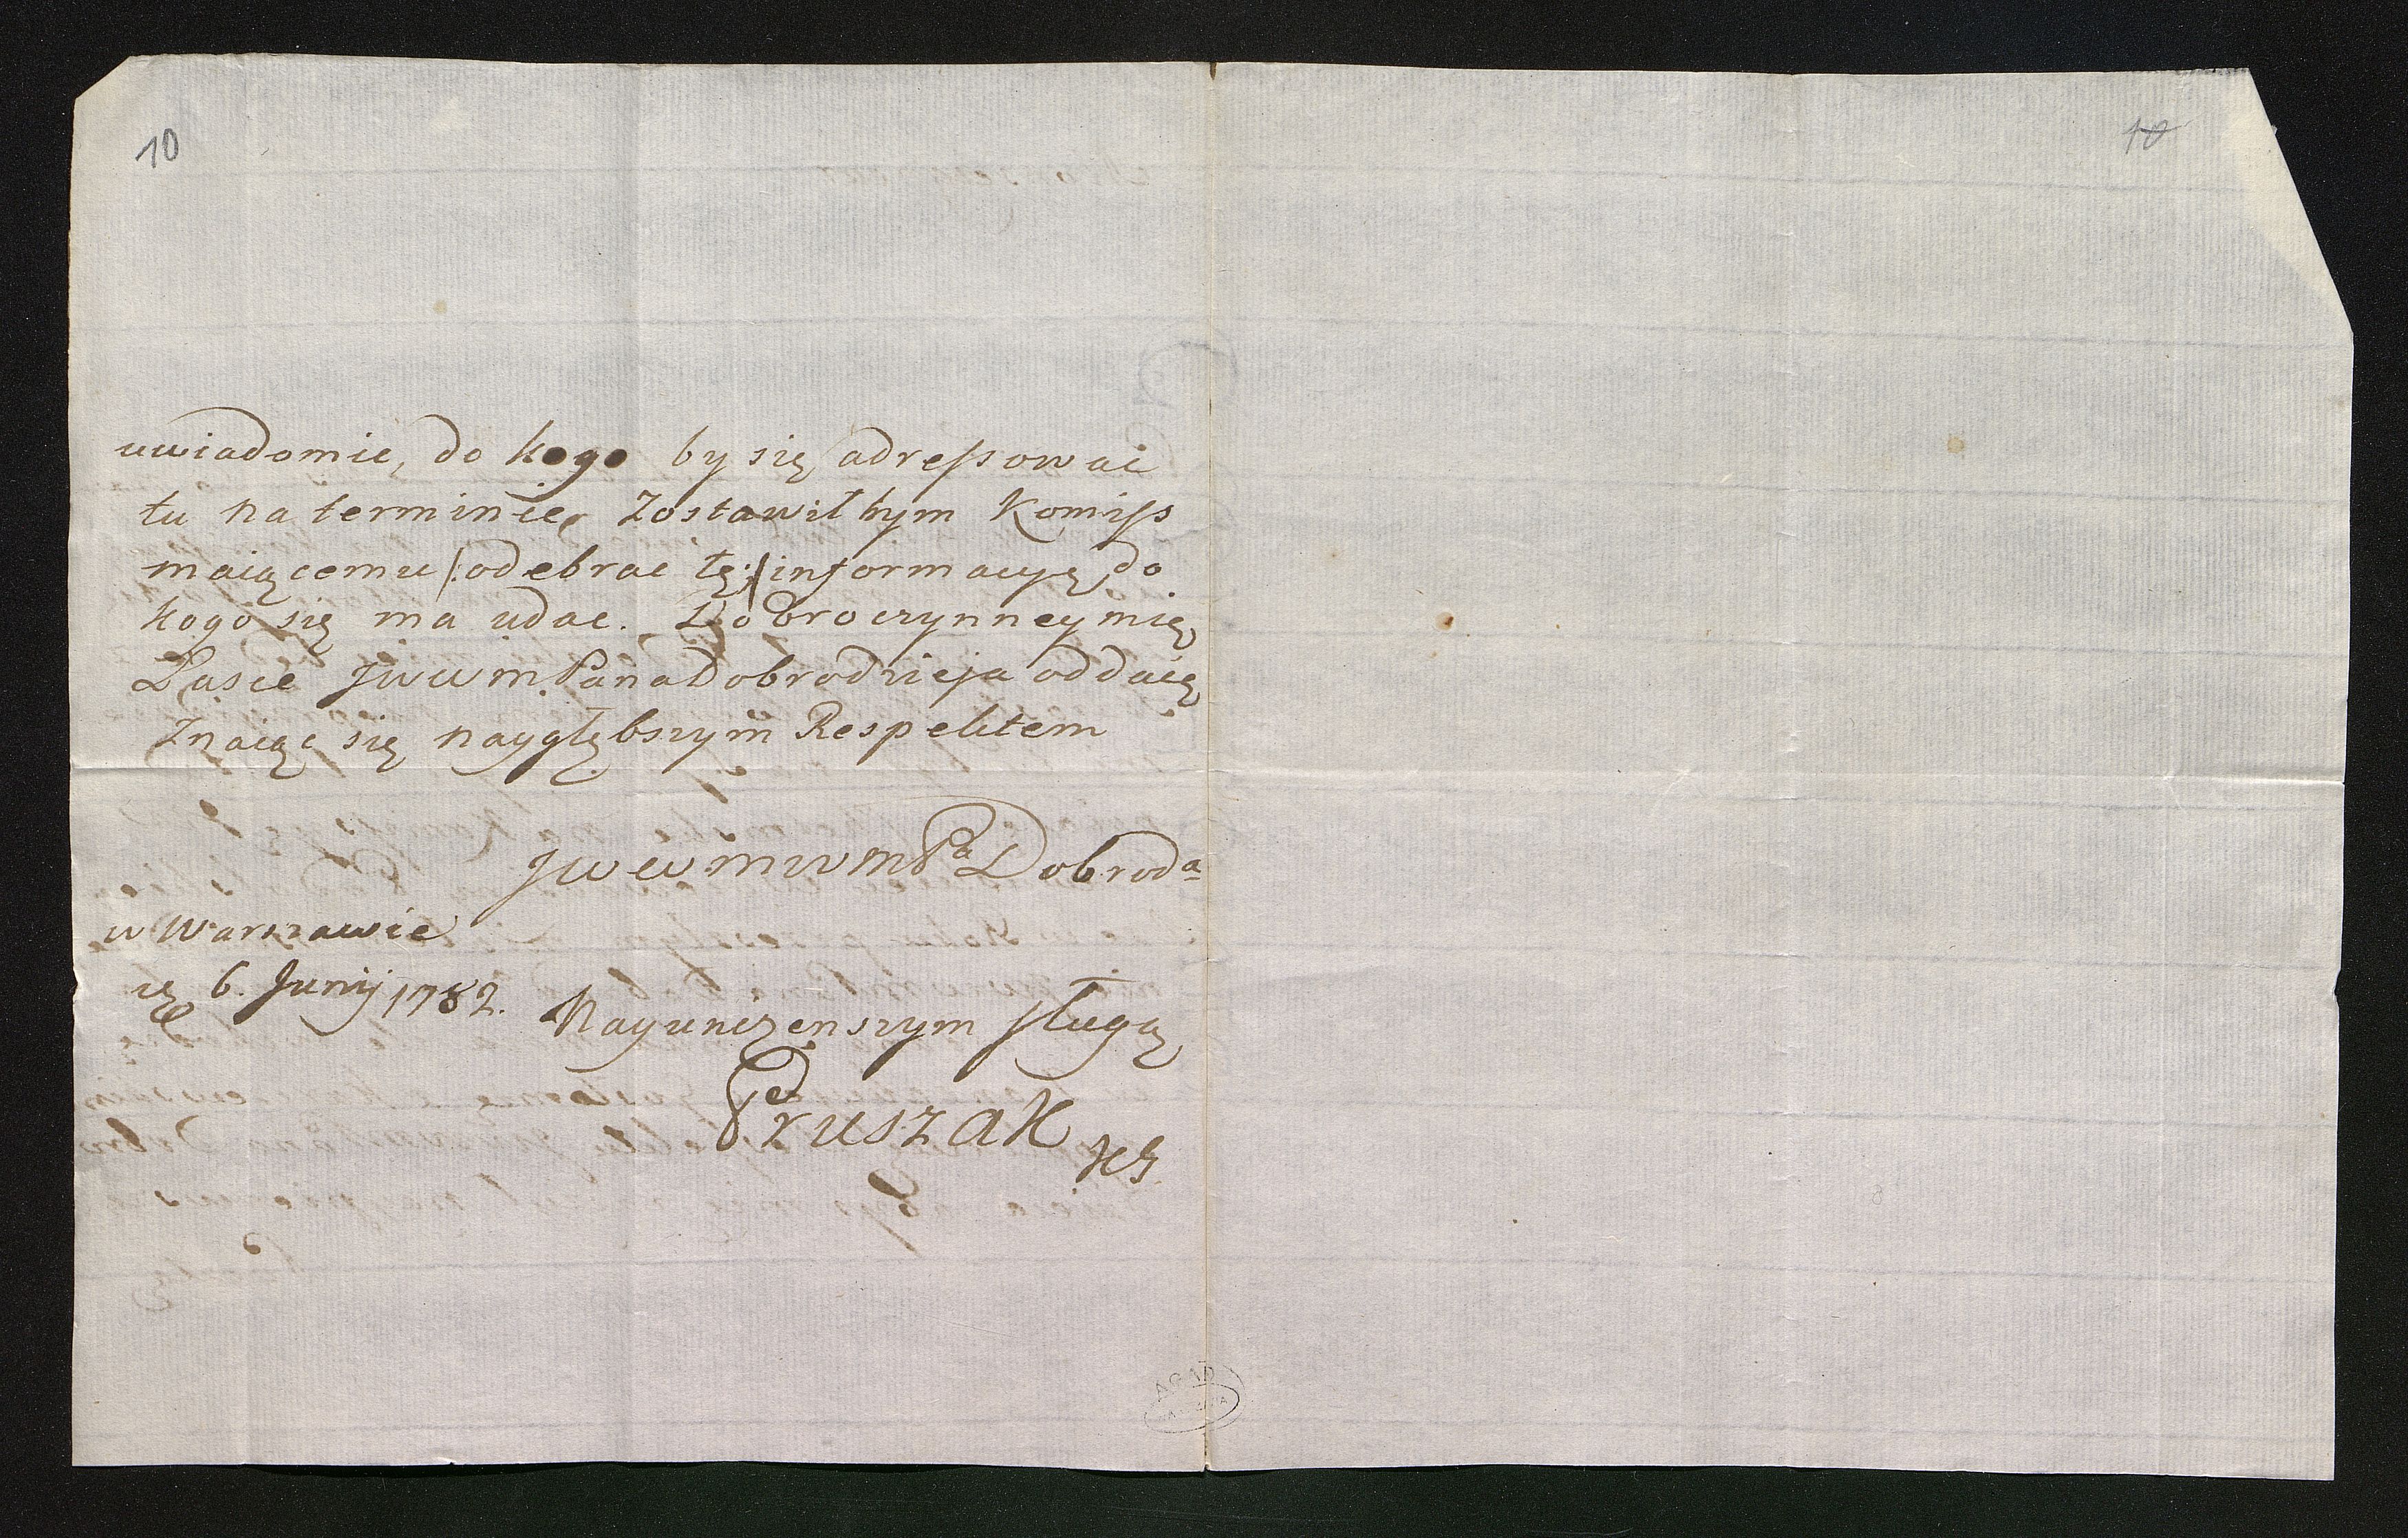 10
10
uwiadomic, do kogo by się adressowac
tu na terminie, Zostawiłbym Komiss
maiącemu /: odebrac tę :/ informacyę do
kogo się ma udac. Dobroczynney mię
Łasce JWWM Pana Dobrodzieja oddaię
Znaiąc się naygłębszym Respektem
JWWMWMPa Dobroda
w Warszawie
6. Junij 1782.
Nayunizenszym sługą
Pruszak
AGAD